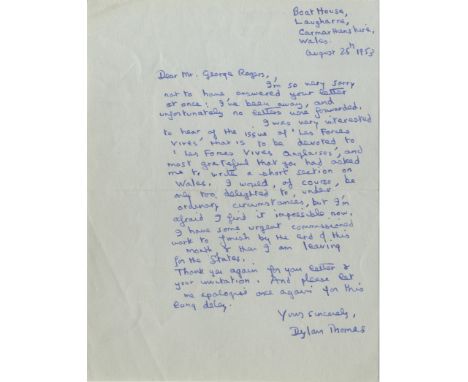 Boat House,
Laugharne,
Carmarthenshire,
Wales.
August 25th 1953
Dear Mr. George Rogers,
I'm so very sorry
not to have answered your letter
at once: I've been away, and
unfortunately no letters were forwarded.
I was very interested
to hear of the issue of 'Les Forces
Vives' that is to be devoted to
'Les Forces Vives Anglaises', and
most grateful that you had asked
me to write a short section on
Wales. I would, of course, be
only too delighted to, under
ordinary circumstances, but I'm
afraid I find it impossible now.
I have some urgent commissioned
work to finish by the end of this
month & then I am leaving
for the States.
Thank you again for your letter &
your invitation. And please let
me apologise once again for this
long delay.
Yours sincerely,
Dylan Thomas